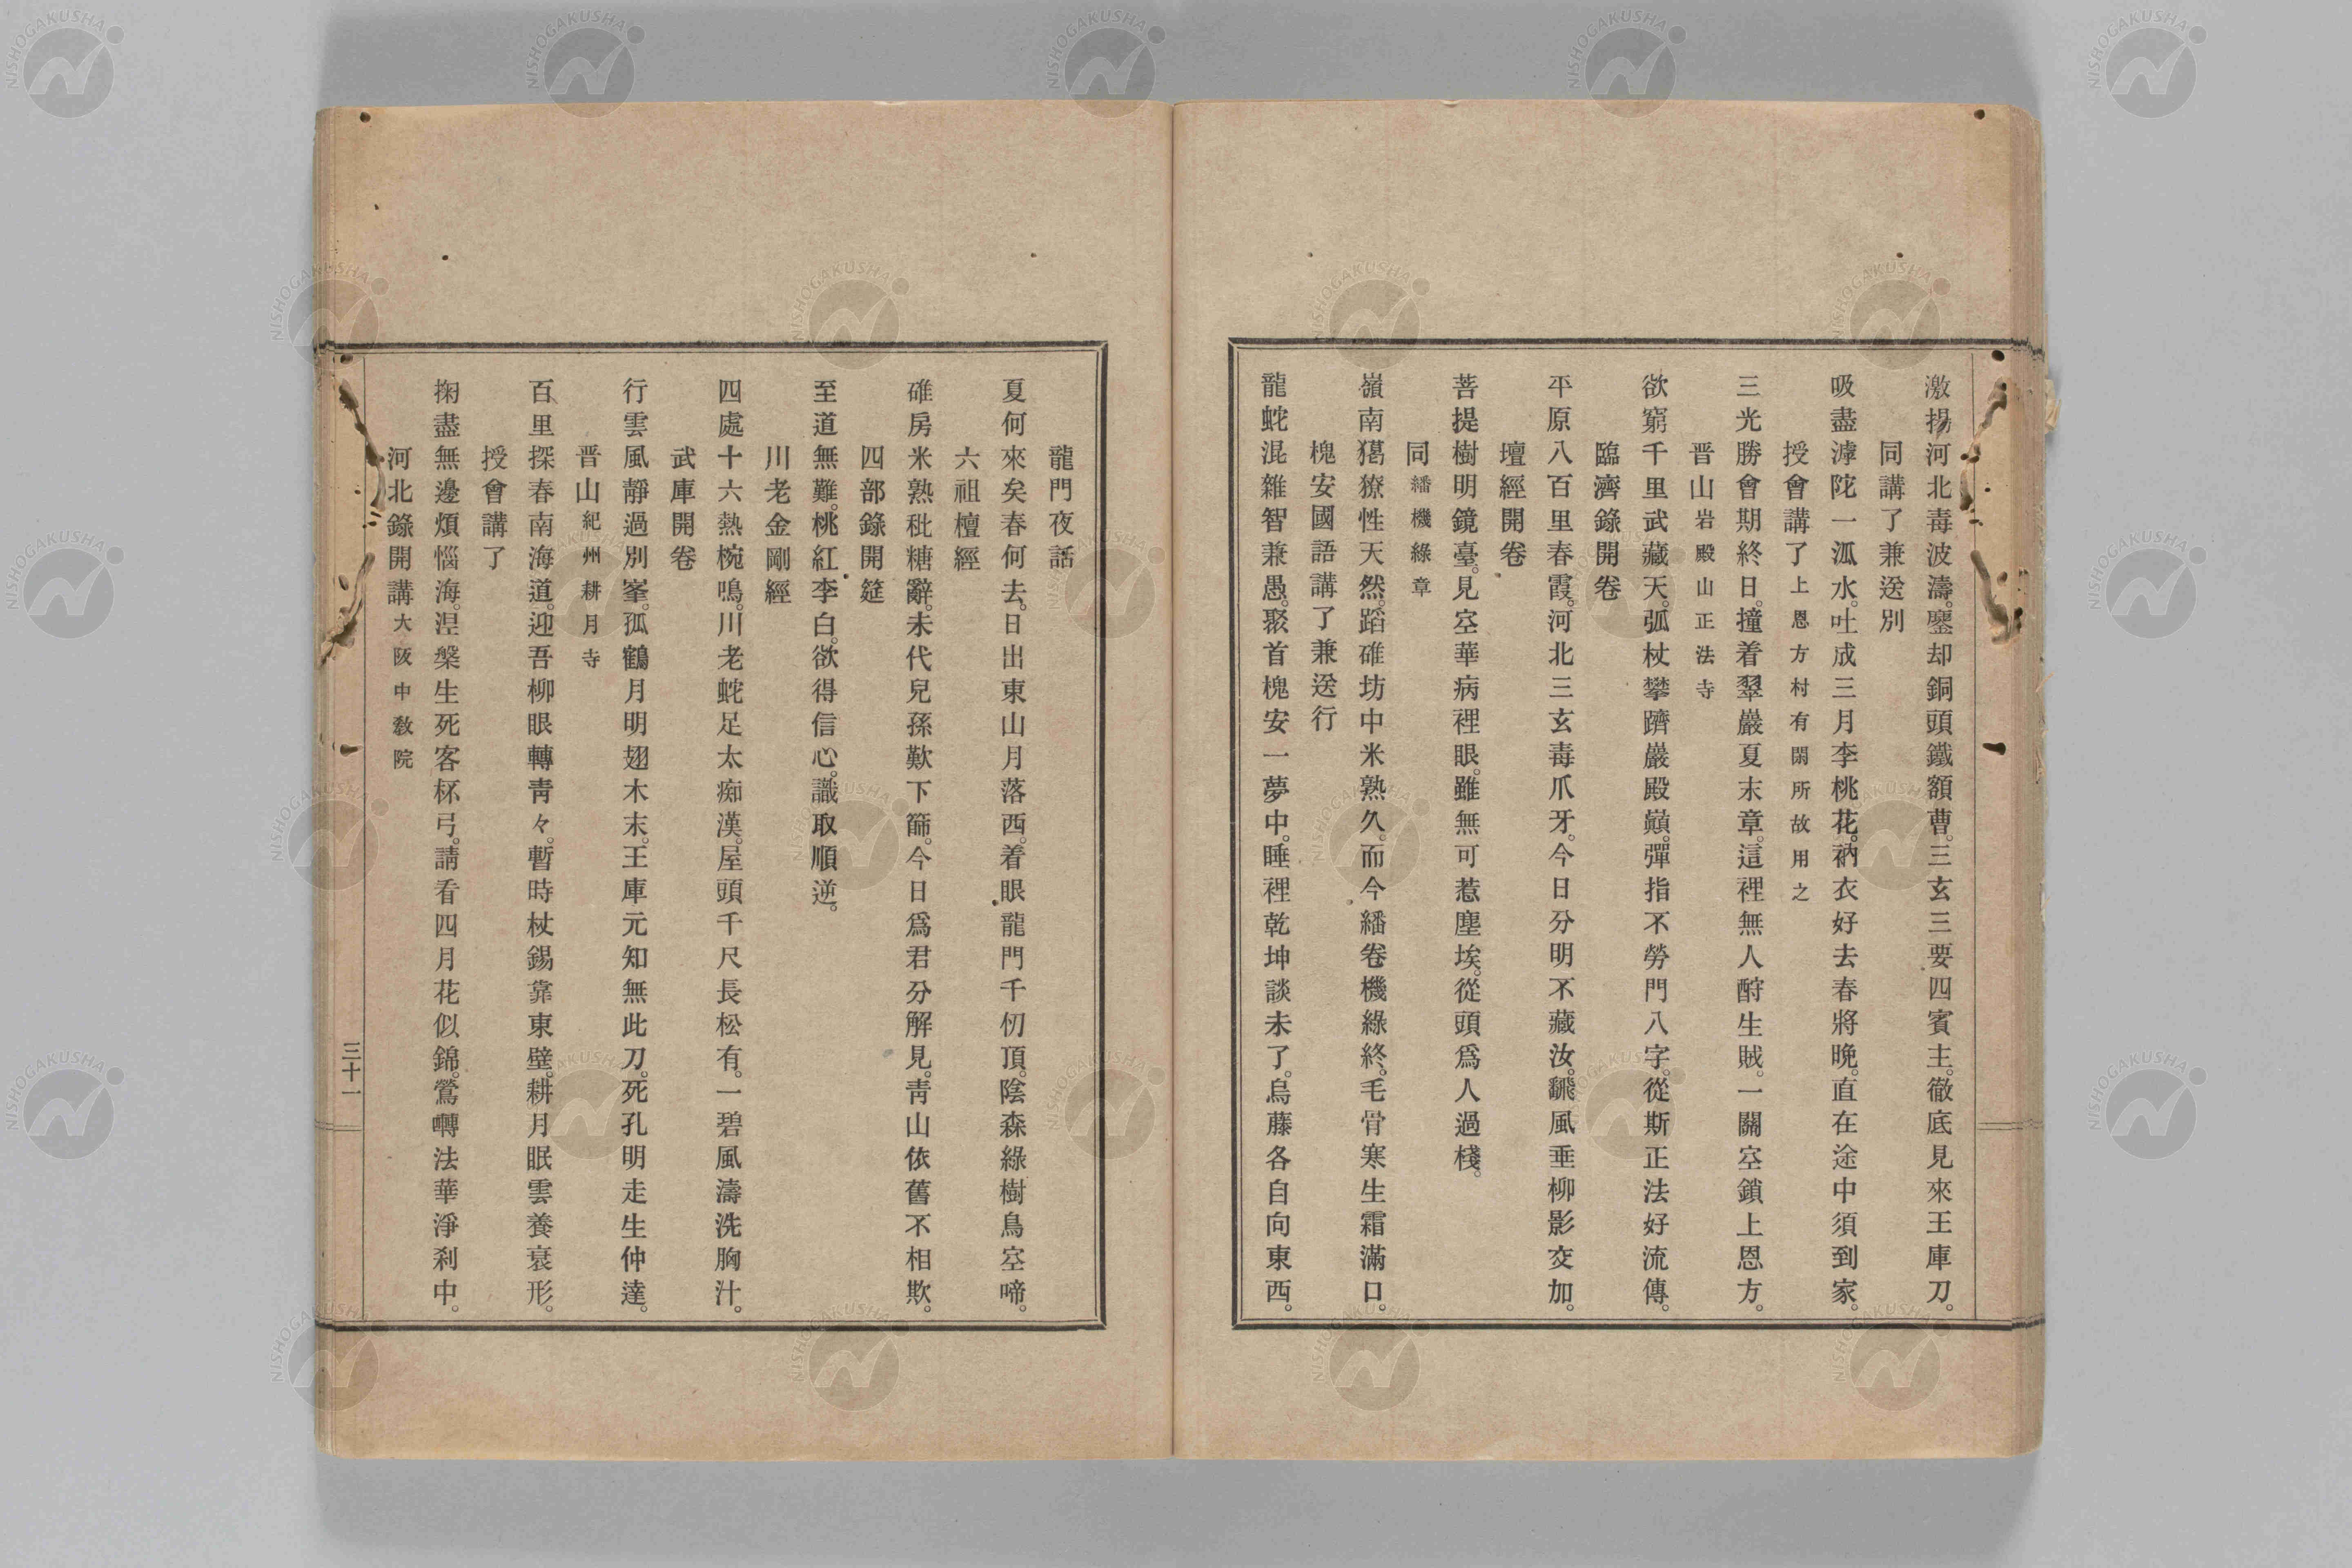 激揚河北毒波濤。鏖却銅頭鐵額曹。三玄三要四賓主。徹底見來王庫刀。
同講了兼送別
吸盡滹陀一泒水。吐成三月李桃花。衲衣好去春將晩。直在途中須到家。
授會講了上恩方村有閑所故用之
三光勝會期終日。撞着翠巖夏末章。這裡無人酧生賊。一關空鎖上恩方。
晋山岩殿山正法寺
欲窮千里武藏天。弧杖攀躋巖殿巓。彈指不勞門八字。從斯正法好流傳。
臨濟錄開卷
平原八百里春霞。河北三玄毒爪牙。今日分明不藏汝。颿風垂柳影交加。
壇經開卷
菩提樹明鏡臺。見空華病裡眼。雖無可惹塵埃。從頭爲人過棧。
同繙機綠章
嶺南獦獠性天然。蹈碓坊中米熟久。而今繙卷機綠終。毛骨寒生霜滿口。
槐安國語講了兼送行
龍蛇混雜智兼愚。聚首槐安一夢中。睡裡乾坤談未了。烏藤各自向東西。
龍門夜話
夏何來矣春何去。日出東山月落西。着眼龍門千仞頂。陰森綠樹鳥空啼。
六祖檀經
碓房米熟秕糖辭。末代兒孫歎下篩。今日爲君分解見。靑山依舊不相欺。
四部錄開筵
至道無難。桃紅李白。欲得信心。識取順逆。
川老金剛經
四處十六熱椀鳴。川老蛇足太痴漢。屋頭千尺長松有。一碧風濤洗胸汁。
武庫開卷
行雲風靜過別峯。孤鶴月明翅木末。王庫元知無此刀。死孔明走生仲達。
晋山紀州耕月寺
百里探春南海道。迎吾柳眼轉靑々。暫時杖錫靠東壁。耕月眠雲養衰形。
授會講了
掬盡無邊煩惱海。涅槃生死客杯弓。請看四月花似錦。鶯囀法華淨刹中。
河北錄開講大阪中敎院
三十一
NISHOGAKUSHA